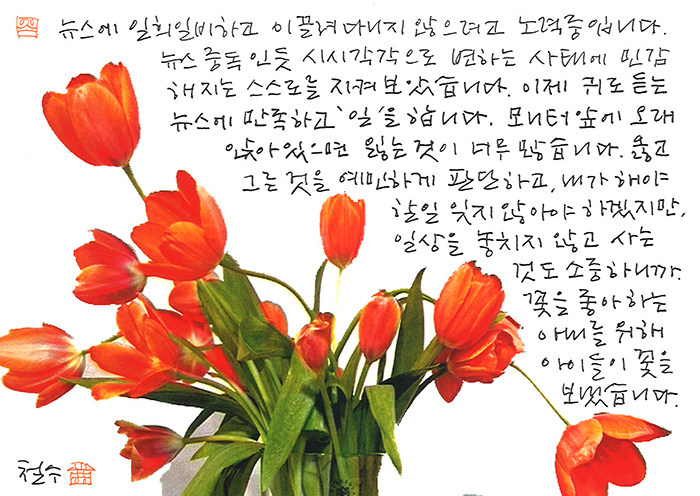 뉴스에 일희일비하고 이끌려다니지 않으려고 노력중입니다.
뉴스 중독인듯 시시각각으로 변하는 사태에 민감
해지는 스스로를 지켜보았습니다. 이제 귀로 듣는
뉴스에 만족하고 '일'을 합니다. 모니터 앞에 오래
앉아있으면 잃는 것이 너무 많습니다. 옳고
그른 것을 예민하게 판단하고, 내가 해야
할일 잊지 않아야 하겠지만,
일상을 놓치지 않고 사는
것도 소중하니까.
꽃을 좋아하는
아내를 위해
아이들이 꽃을
보냈습니다.
철수